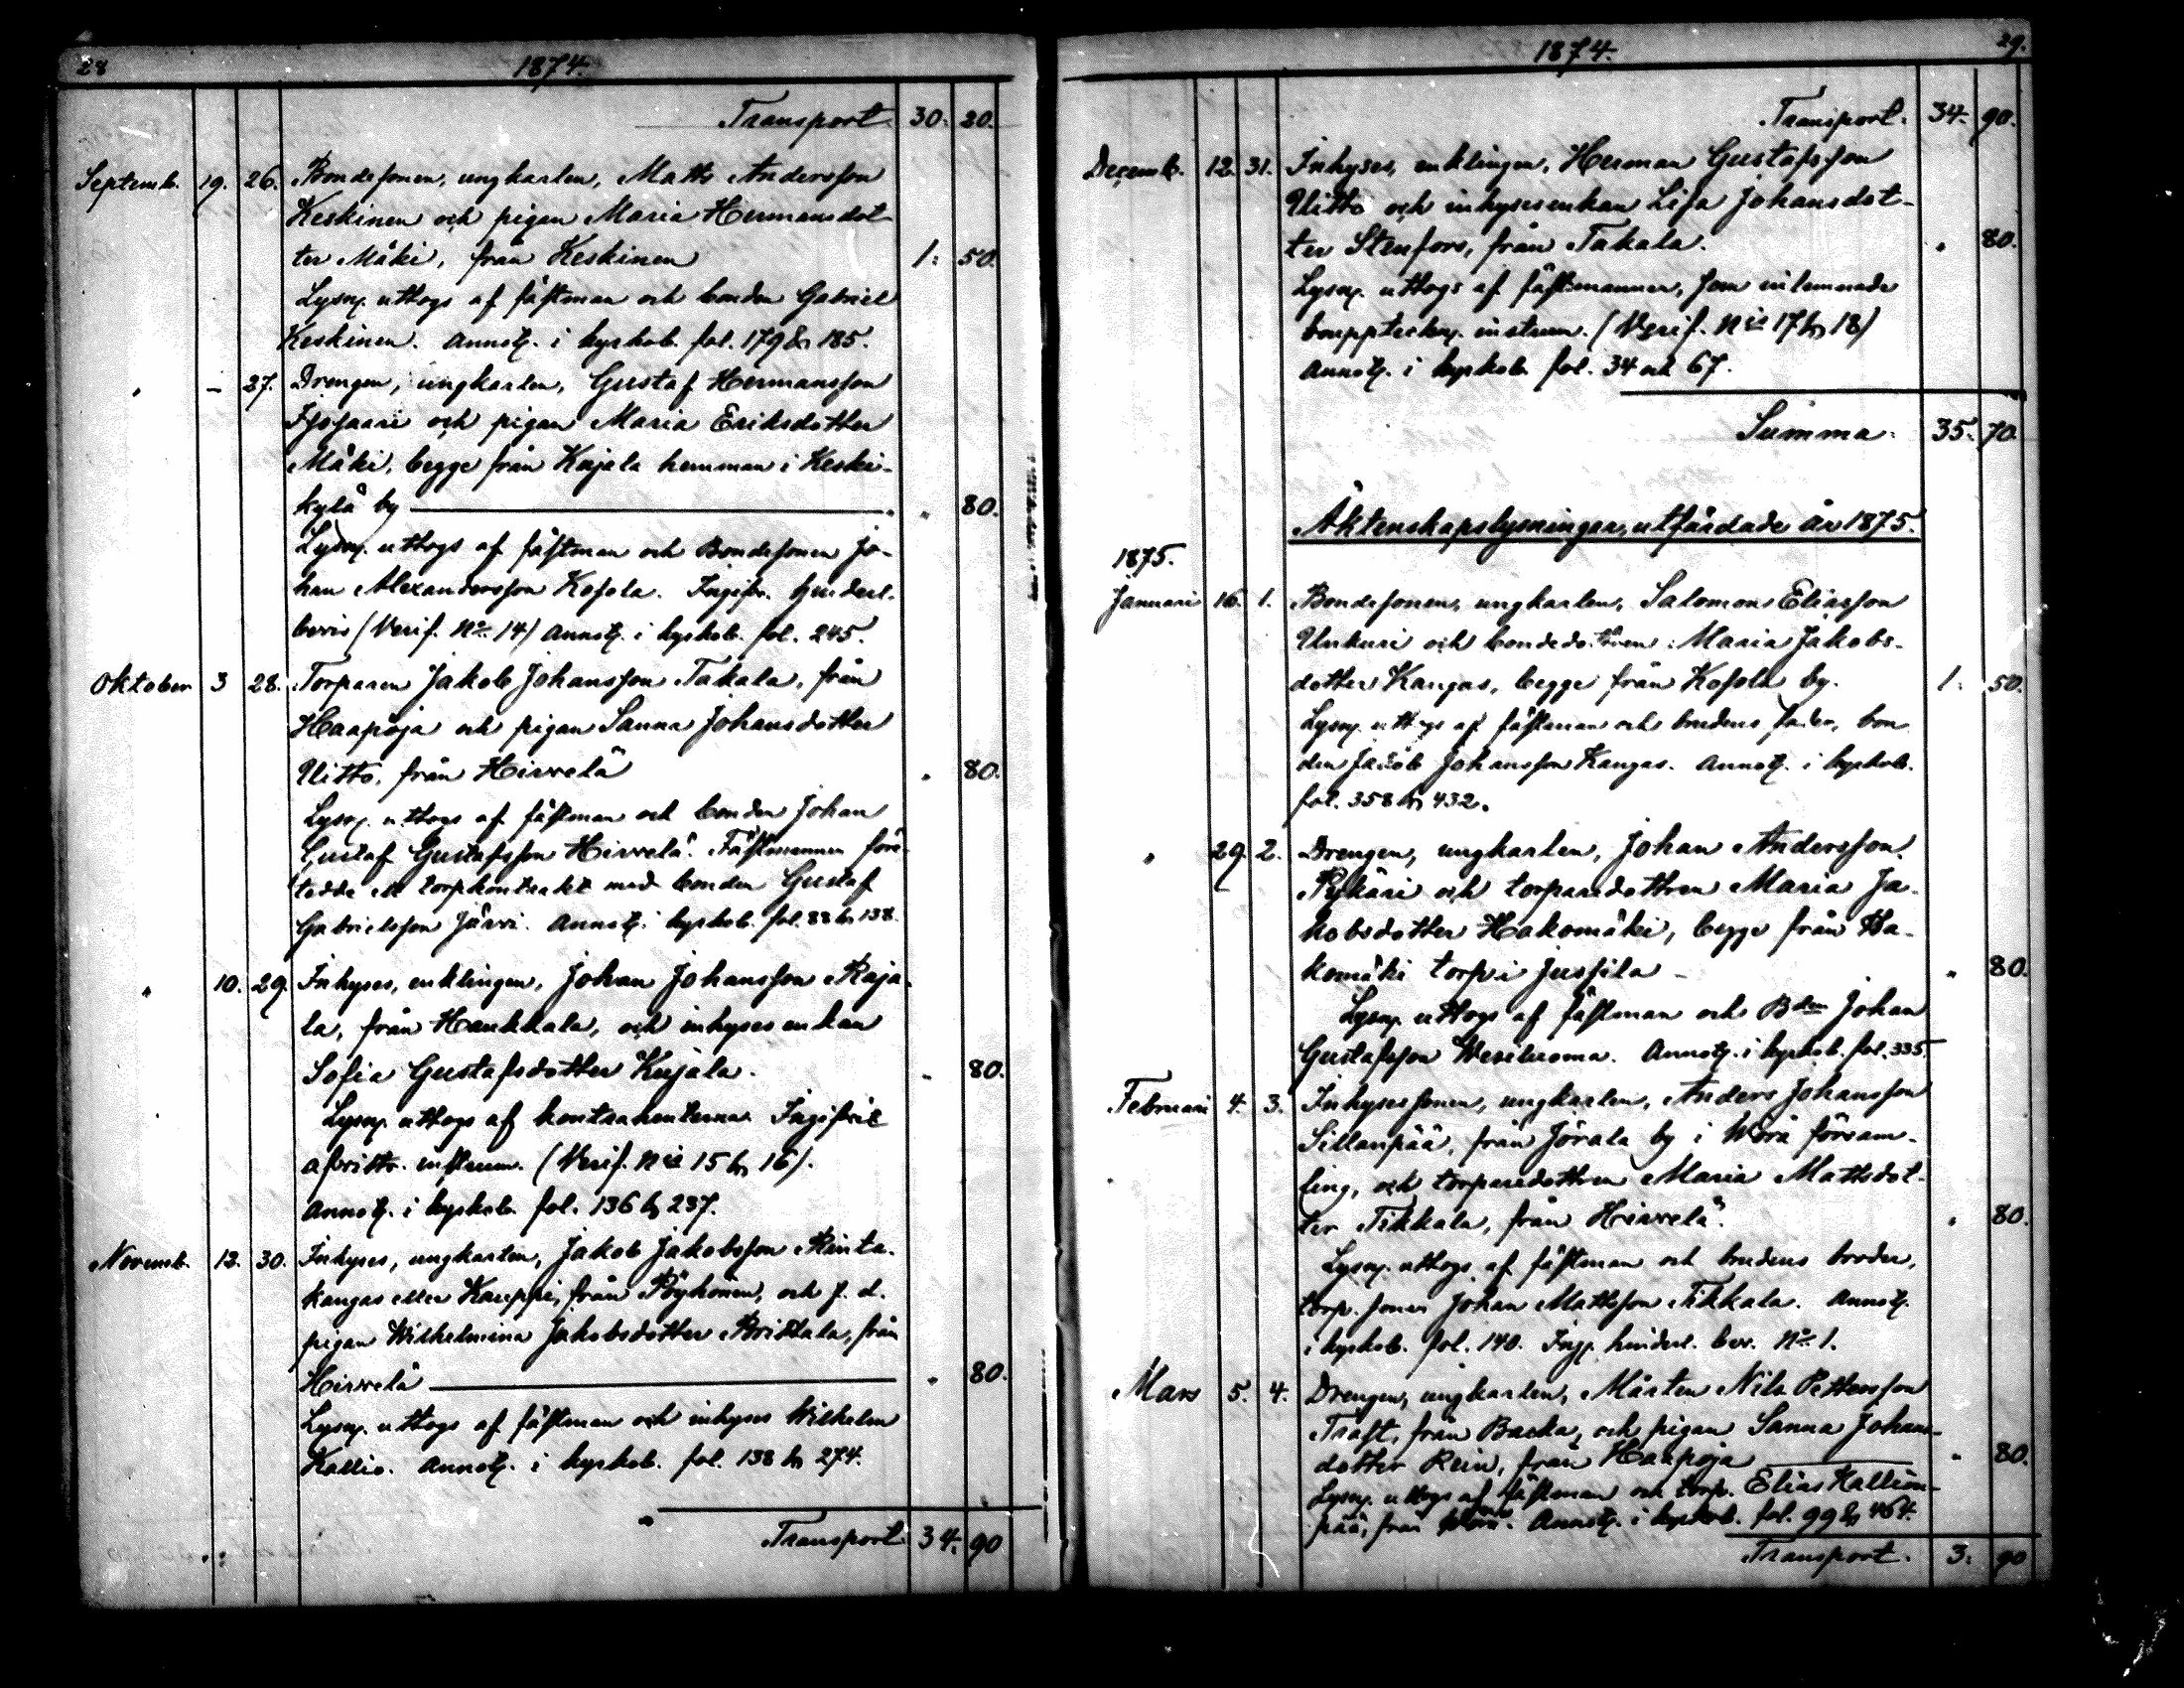 28 1874.
Transport. 30. 20.
Septemb. 19. 26. Bondesonen, ungkarlen, Matts Andersson
Keskinen och pigan Maria Hermansdot-
ter Mäki, från Keskinen 1. 50.
Lysng. uttogs af fästman och bonden Gabriel
Keskinen. Annotg. i kyrkob. fol. 179 & 185.
" – 27. Drengen, ungkarlen, Gustaf Hermansson
Isosaari och pigan Maria Eriksdotter
Mäki, begge från Kujala hemman i Keski-
kylä by " 80.
Lysng. uttogs af fästman och Bondesonen Jo-
han Alexandersson Kosola. Ingifv. hinderl.
bevis (Verif. No. 14) Annotg. i kyrkob. fol. 245.
Oktober 3 28. Torparen Jakob Johansson Takala, från
Haapoja och pigan Sanna Johansdotter
Uitto, från Hirvelä " 80.
Lysng. uttogs af fästman och bonden Johan
Gustaf Gustafsson Hirvelä. Fästmannen före-
tedde ett torpkontrakt med bonden Gustaf
Gabrielsson Järvi. Annotg. i kyrkob. fol. 88 & 138.
" 10. 29. Inhyses, enklingen, Johan Johansson Raja-
la, från Haukkala, och inhyses enkan
Sofia Gustafsdotter Kujala. " 80.
Lysng. uttogs af kontrahenterna. Ingifvit
afvittr. instrum. (Verif. N:is 15 & 16).
Annotg. i kyrkob. fol. 136 & 237.
Novemb. 12. 30. Inhyses, ungkarlen, Jakob Jakobsson Rinta-
kangas eller Kauppi, från Pöyhönen, och f. d.
pigan Wilhelmina Jakobsdotter Ristala, från
Hirvelä " 80.
Lysng. uttogs af fästman och inhyses Wilhelm
Kallio. Annotg. i kyrkob. fol. 138 & 274.
Transport. 34. 90
1874. 29.
Transport. 34. 90.
Decemb. 12. 31. Inhyses, enklingen, Herman Gustafsson
Uitto och inhysesenkan Lisa Johansdot-
ter Stenfors, från Takala. " 80.
Lysng. uttogs af fästmannen, som inlemnade
bouppteckng. instrum. (Verif. N:is 17 & 18)
Annotg. i kyrkob. fol. 34 och 67.
Summa. 35. 70.
Äktenskapslysningar, utfärdade år 1875.
1875.
Januari 16. 1. Bondesonen, ungkarlen, Salomon Eliasson
Unkuri och bondedottren Maria Jakobs-
dotter Kangas, begge från Kosola by. 1. 50.
Lysng. uttogs af fästman och brudens fader, bon
den Jakob Johansson Kangas. Annotg. i kyrkob.
fol. 358 & 432.
" 29. 2. Drengen, ungkarlen, Johan Andersson
Pykäri och torparedottren Maria Ja-
kobsdotter Hakomäki, begge från Ha-
komäki torp i Jussila – " 80.
Lysng. uttogs af fästman och Bden Johan
Gustafsson Wesiluoma. Annotg. i kyrkob. fol. 335.
Februari 4. 3. Inhysessonen, ungkarlen, Anders Johansson
Sillanpää, från Jörala by i Wörå försam-
ling, och torparedottren Maria Mattsdot-
ter Tikkala, från Hirvelä. " 80.
Lysng. uttogs af fästman och brudens broder,
torp. sonen Johan Mattsson Tikkala. Annotg.
i kyrkob. fol. 140. Ing. hinderl. bev. No. 1.
Mars 5. 4. Drengen, ungkarlen, Mårten Nils Pettersson
Trast, från Backa, och pigan Sanna Johans-
dotter Rein, från Haapoja " 80.
Lysng. uttogs af fästman och torp. Elias Kallion-
pää, från Annotg. i kyrkob. fol. 99 & 464.
Transport. 3. 90